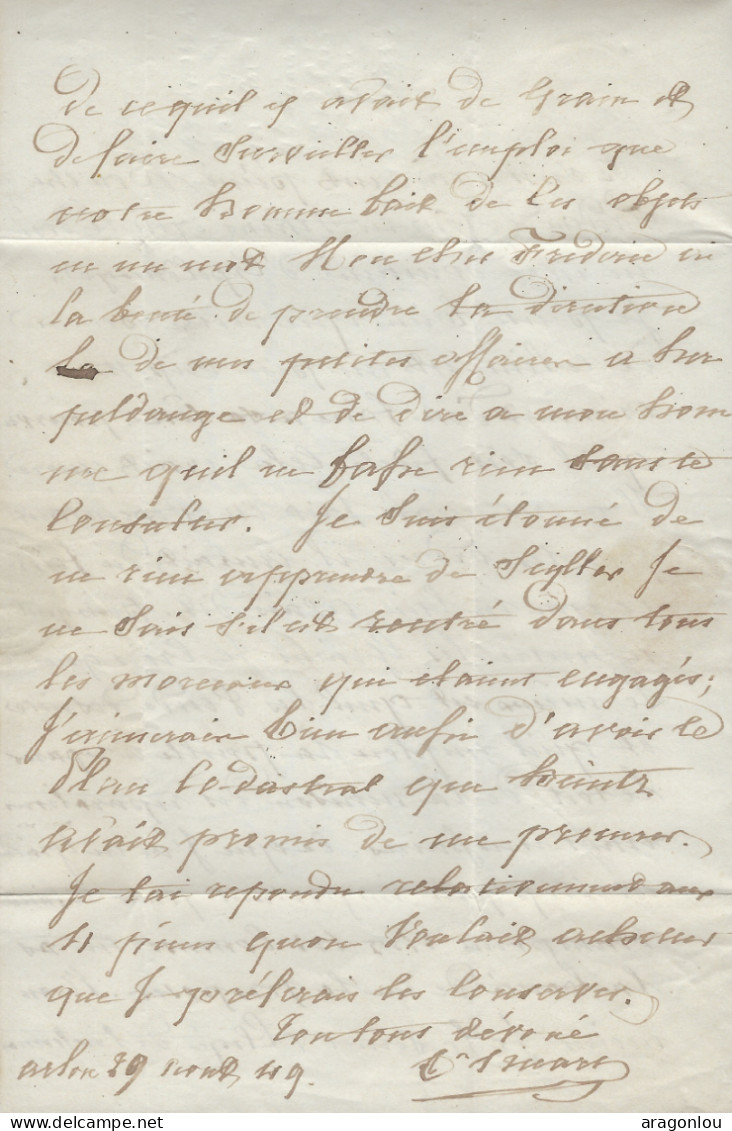 de ce quil y avait de Grain et
defaire Surveiller l'emploi que
notre homme fait de les objets
en un mot Mon cher Frederic
la bonté de prendre la direction
la de mes petites affaires a
puldange et de dire a mon hom
me quil ne fasse rien Sans te
Consulter. Je Suis étonné de
ne rien apprendre de Je
ne Sais S'il est rentré dans tous
les morceaux qui étaient engagés;
J'aimerais bien enfin d'avoir le
Plan Cadastral que heintz
m'avait promis de me procurer.
Je lai repondu relativement aux
11 pieces quon voulait acheter
que Je préférais les Conserver.
Ton tous dévoué
arlon 29 aout 49.
aragonlou